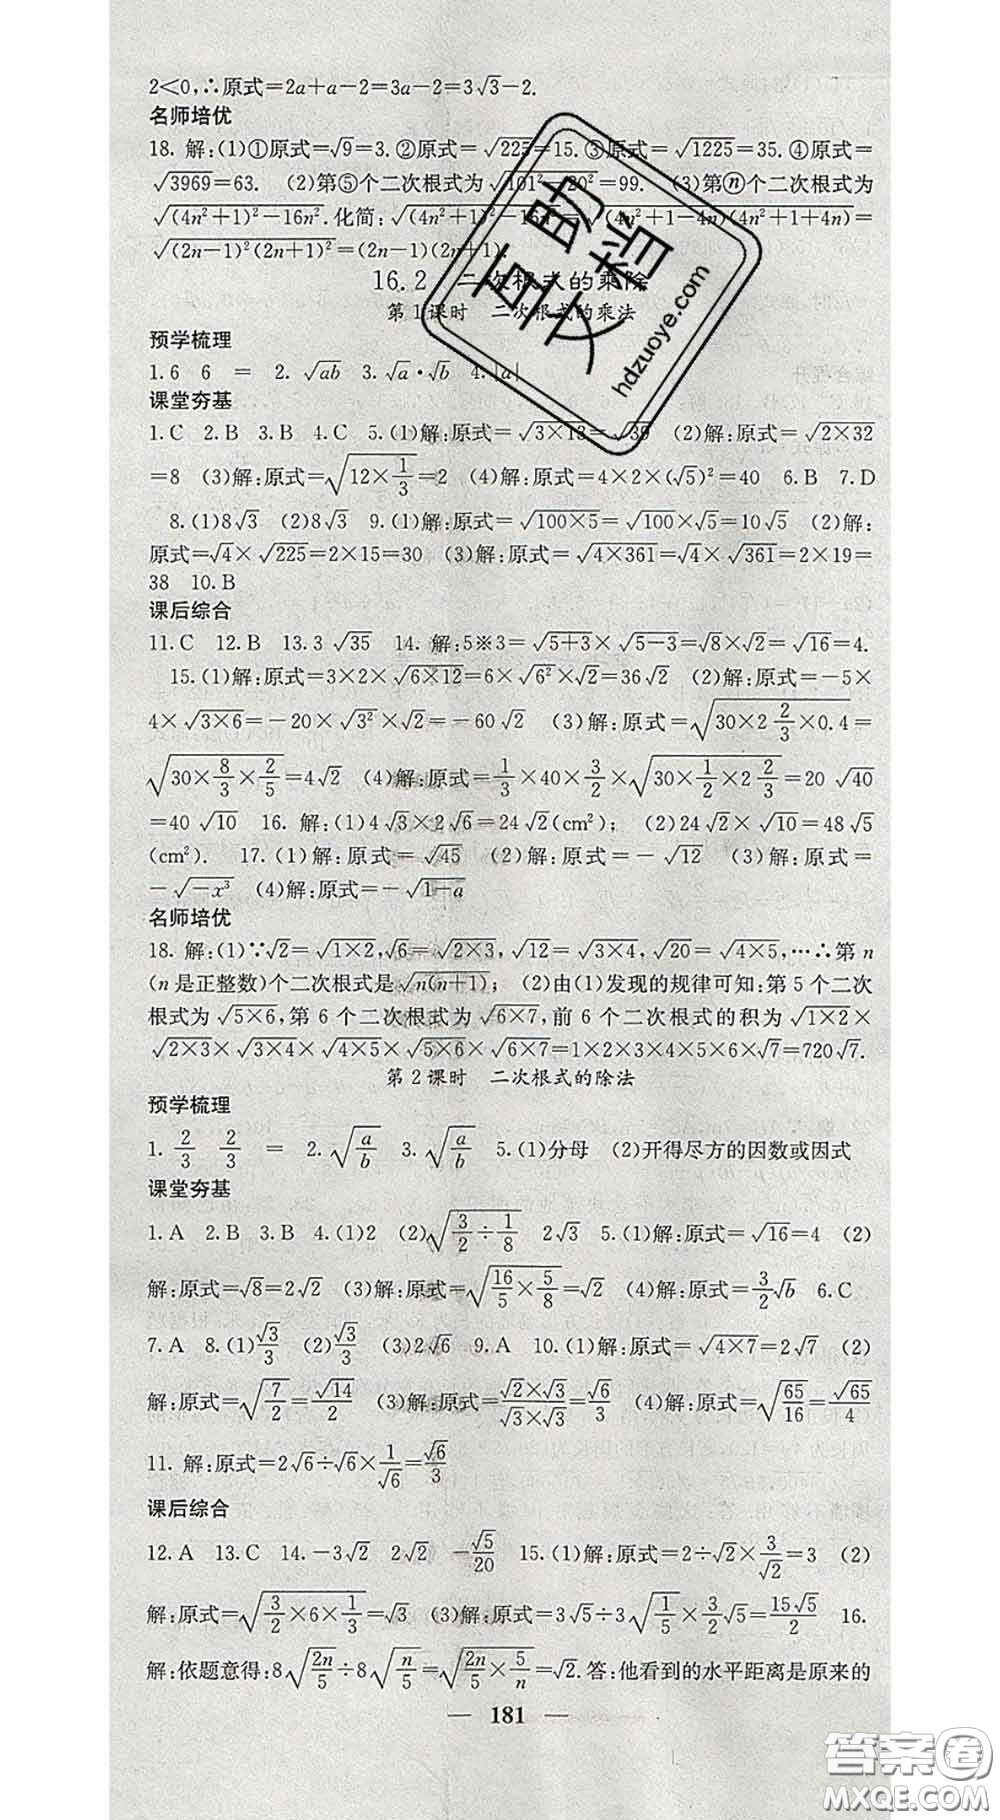 2<0,∴原式=2a+a−2=3a−2=3√3−2.
名师培优
18. 解:(1)①原式=√9=3. ②原式=√225=15. ③原式=√1225=35. ④原式=
√3969=63. (2)第⑤个二次根式为√(101²−20²)=99. (3)第ⓝ个二次根式为
√((4n²+1)²−16n²). 化简:√((4n²+1)²−16n²)=√((4n²+1−4n)(4n²+1+4n))=
√((2n−1)²(2n+1)²)=(2n−1)(2n+1)
16.2 二次根式的乘除
第1课时 二次根式的乘法
预学梳理
1.6 6 = 2.√ab 3.√a·√b 4.|a|
课堂夯基
1.C 2.B 3.B 4.C 5.(1)解:原式=√(3×13)=√39 (2)解:原式=√(2×32)
=8 (3)解:原式=√(12×1/3)=2 (4)解:原式=4×2×(√5)²=40 6.B 7.D
8.(1)8√3 (2)8√3 9.(1)解:原式=√(100×5)=√100×√5=10√5 (2)解:
原式=√4×√225=2×15=30 (3)解:原式=√(4×361)=√4×√361=2×19=
38 10.B
课后综合
11.C 12.B 13.3√35 14. 解:5※3=√(5+3)×√(5−3)=√8×√2=√16=4.
15.(1)解:原式=3×2×√(6×12)=6×√6²×√2=36√2 (2)解:原式=−5×
4×√(3×6)=−20×√3²×√2=−60√2 (3)解:原式=√(30×2 2/3×0.4)=
√(30×8/3×2/5)=4√2 (4)解:原式=1/3×40×3/2×√(30×1/2×2 2/3)=20√40
=40√10 16. 解:(1)4√3×2√6=24√2(cm²); (2)24√2×√10=48√5
(cm²). 17.(1)解:原式=√45 (2)解:原式=−√12 (3)解:原式=
−√(−x³) (4)解:原式=−√(1−a)
名师培优
18. 解:(1)∵√2=√(1×2),√6=√(2×3),√12=√(3×4),√20=√(4×5),…∴第n
(n是正整数)个二次根式是√(n(n+1)); (2)由(1)发现的规律可知:第5个二次
根式为√(5×6),第6个二次根式为√(6×7),前6个二次根式的积为√(1×2)×
√(2×3)×√(3×4)×√(4×5)×√(5×6)×√(6×7)=1×2×3×4×5×6×√7=720√7.
第2课时 二次根式的除法
预学梳理
1. 2/3 2/3 = 2.√(a/b) 3.√(a/b) 5.(1)分母 (2)开得尽方的因数或因式
课堂夯基
1.A 2.B 3.B 4.(1)2 (2)√(3/2÷1/8) 2√3 5.(1)解:原式=√16=4 (2)
解:原式=√8=2√2 (3)解:原式=√(16/5×5/8)=√2 (4)解:原式=3/2√b 6.C
7.A 8.(1)√3/3 (2)√3/3 (3)2√6 9.A 10.(1)解:原式=√(4×7)=2√7 (2)
解:原式=√(7/2)=√14/2 (3)解:原式=(√2×√3)/(√3×√3)=√6/3 (4)解:原式=√(65/16)=√65/4
11. 解:原式=2√6÷√6×1/√6=√6/3
课后综合
12.A 13.C 14.−3√2 2√2 −√5/20 15.(1)解:原式=2÷√2×3/√2=3 (2)
解:原式=√(3/2×6×1/3)=√3 (3)解:原式=3√5÷3√(1/5)×3/2√5=15√5/2 16.
解:依题意得:8√(2n/5)÷8√(n/5)=√(2n/5×5/n)=√2. 答:他看到的水平距离是原来的
— 181 —
互助文档
hdzuoye.com
答案圈
MXQE.COM